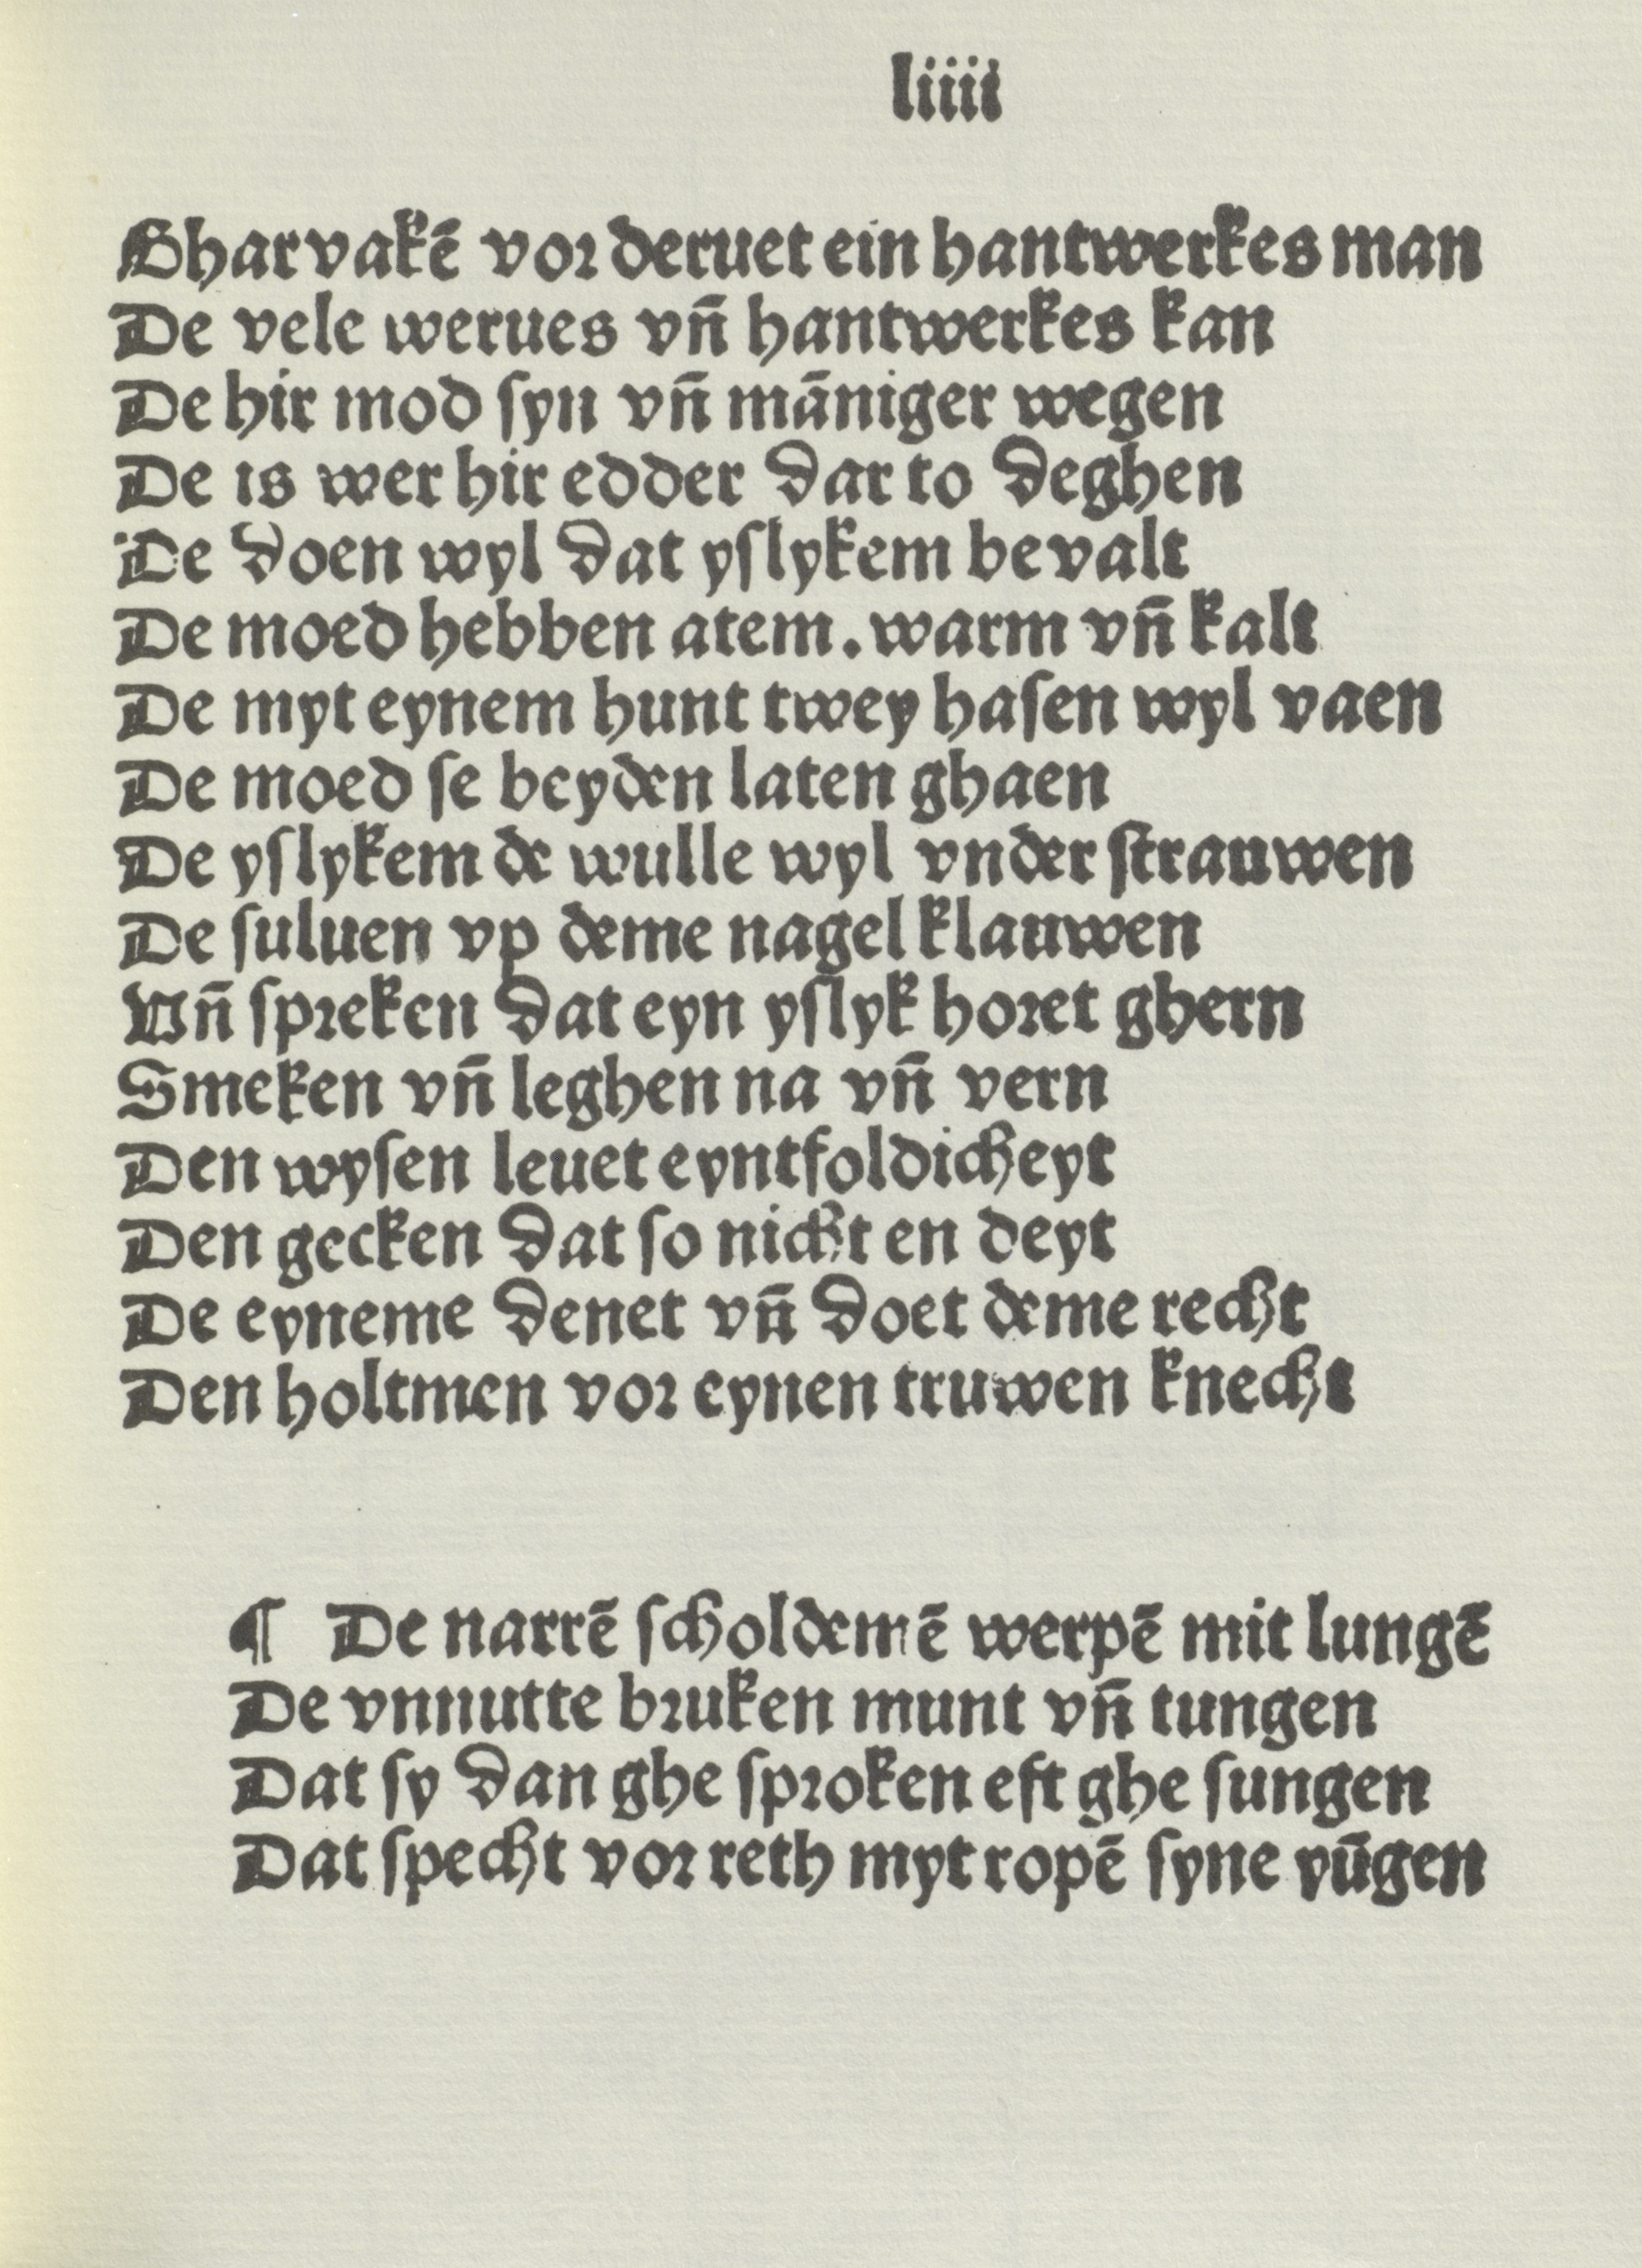 liiii
Ghar vakē vor deruet ein hantwerkes man
De vele werues vñ hantwerkes kan
De hir mod syn vñ māniger wegen
De is wer hir edder dar to deghen
De doen wyl dat yslykem be valt
De moed hebben atem. warm vñ kalt
De myt eynem hunt twey hasen wyl vaen
De moed se beyden laten ghaen
De yslykem de wulle wyl vnder strauwen
De suluen vp deme nagel klauwen
Vñ spreken dat eyn yslyk horet ghern
Smeken vñ leghen na vñ vern
Den wysen leuet eyntfoldicheyt
Den gecken dat so nicht en deyt
De eyneme denet vñ doet deme recht
Den holtmen vor eynen truwen knecht
¶ De narrē scholdemē werpē mit lungē
De vnnutte bruken munt vñ tungen
Dat sy dan ghe sproken eft ghe sungen
Dat specht vor reth myt ropē syne yūgen